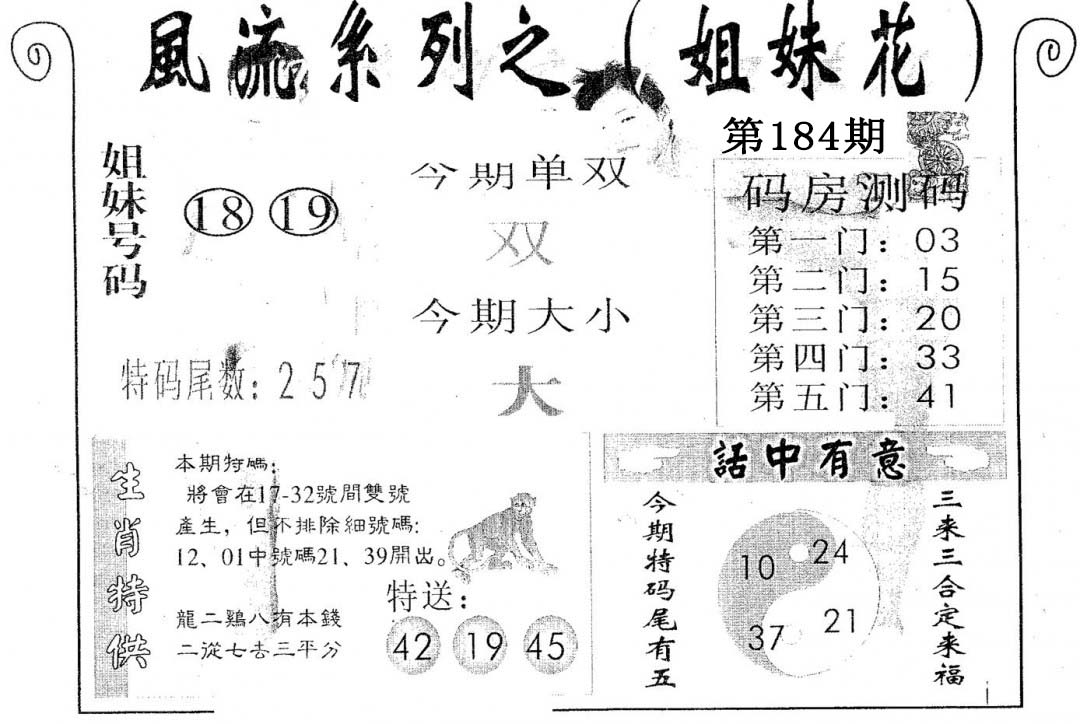 風流系列之（姐妹花）
第184期
姐妹号码
18 19
今期单双
双
今期大小
大
特码尾数：257
码房测码
第一门：03
第二门：15
第三门：20
第四门：33
第五门：41
生肖特供
本期特碼：
將會在17-32號間雙號
產生，但不排除細號碼:
12、01中號碼21、39開出。
龍二鷄八有本錢
二從七去三平分
特送：
42 19 45
話中有意
今期特码尾有五
10 24
37 21
三来三合定来福